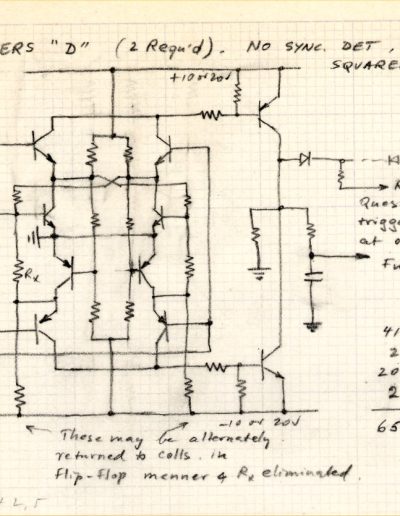 ERS "D" (2 Requ'd). NO SYNC. DET.,
SQUARE
+10 or 20v
R
Ques
trigge
at o
Rx
Fu
41
2
20
2
65
-10 or 20v
These may be alternately
returned to colls. in
flip-flop manner & Rx eliminated.